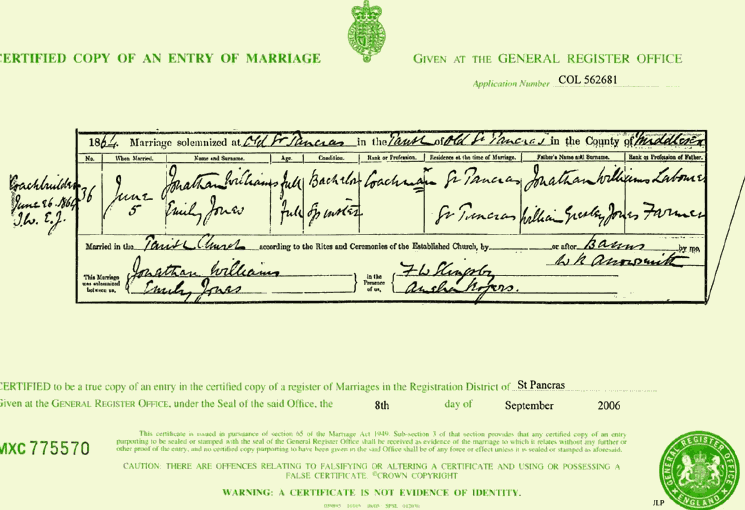 CERTIFIED COPY OF AN ENTRY OF MARRIAGE
GIVEN AT THE GENERAL REGISTER OFFICE
Application Number COL 562681
1864. Marriage solemnized at Old St Pancras in the Parish of Old St Pancras in the County of Middlesex
No. When Married. Name and Surname. Age. Condition. Rank or Profession. Residence at the time of Marriage. Father's Name and Surname. Rank or Profession of Father.
Coachbuilder
June 26. 1864
36 June 5 Jonathan Williams full Bachelor Coachman St Pancras Jonathan Williams Labourer
Emily Jones full Spinster St Pancras William Gresley Jones Farmer
Married in the Parish Church according to the Rites and Ceremonies of the Established Church, by or after Banns by me,
W R Arrowsmith
This Marriage was solemnized between us, Jonathan Williams
Emily Jones
in the Presence of us, F W Slingsby
Rogers.
CERTIFIED to be a true copy of an entry in the certified copy of a register of Marriages in the Registration District of St Pancras
Given at the GENERAL REGISTER OFFICE, under the Seal of the said Office, the 8th day of September 2006
MXC 775570
This certificate is issued in pursuance of section 65 of the Marriage Act 1949. Sub-section 3 of that section provides that any certified copy of an entry
purporting to be sealed or stamped with the seal of the General Register Office shall be received as evidence of the marriage to which it relates without any further or
other proof of the entry, and no certified copy purporting to have been given in the said Office shall be of any force or effect unless it is sealed or stamped as aforesaid.
CAUTION: THERE ARE OFFENCES RELATING TO FALSIFYING OR ALTERING A CERTIFICATE AND USING OR POSSESSING A
FALSE CERTIFICATE ©CROWN COPYRIGHT
WARNING: A CERTIFICATE IS NOT EVIDENCE OF IDENTITY.
GENERAL REGISTER OFFICE
ENGLAND
JLP